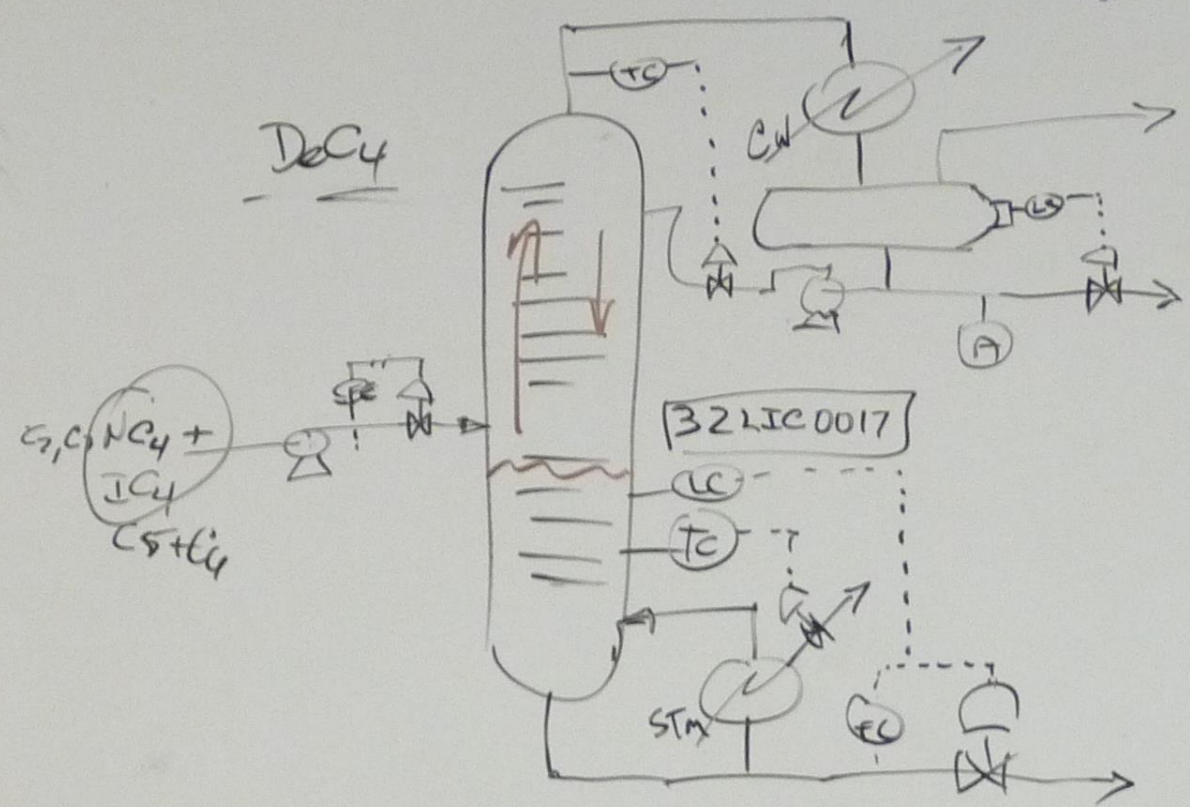 DeC4
TC
CW
LC
A
NC4 +
IC4
C5+C4
32LIC0017
LC
TC
STM
FC